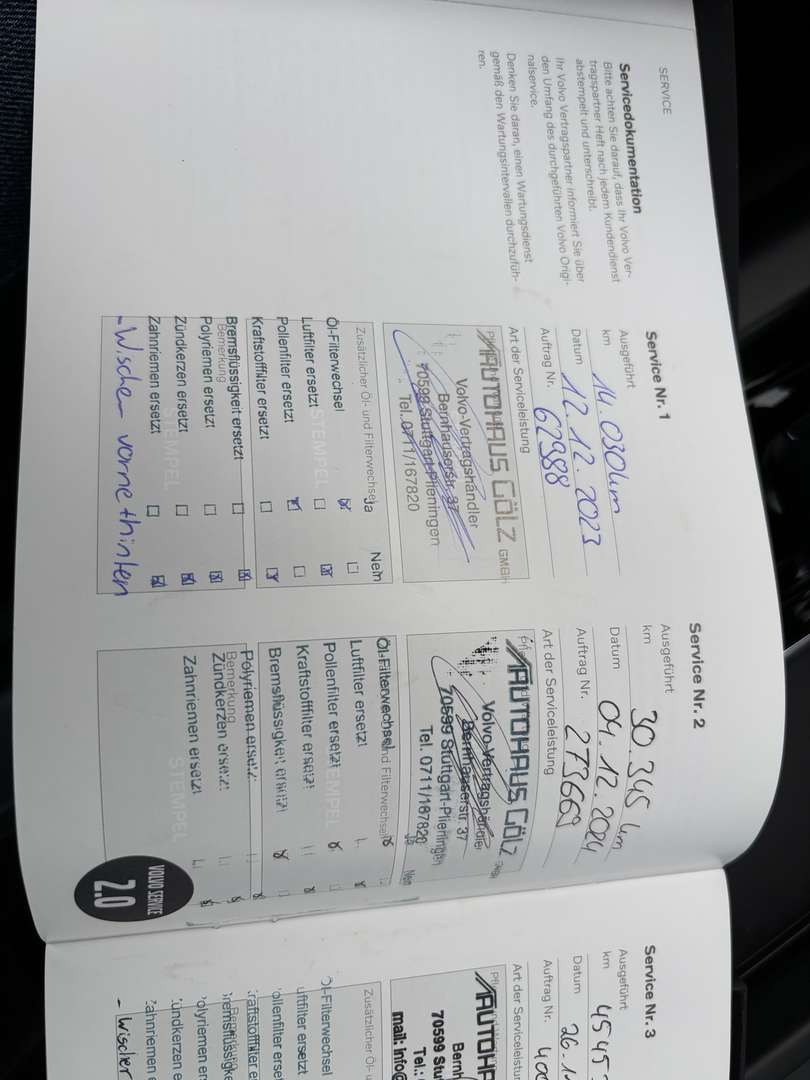 SERVICE
Servicedokumentation
Bitte achten Sie darauf, dass Ihr Volvo Ver-
tragspartner Heft nach jedem Kundendienst
abstempelt und unterschreibt.
Ihr Volvo Vertragspartner informiert Sie über
den Umfang des durchgeführten Volvo Origi-
nalservice.
Denken Sie daran, einen Wartungsdienst
gemäß den Wartungsintervallen durchzufüh-
ren.
Service Nr. 1
Ausgeführt
km 14.030km
Datum 12.12.2023
Auftrag Nr. 62988
Art der Serviceleistung
AUTOHAUS GÖLZ GMBH
Volvo-Vertragshändler
Bernhauserstr. 37
70599 Stuttgart-Plieningen
Tel. 0711/167820
Zusätzlicher Öl- und Filterwechsel Ja Nein
Öl-Filterwechsel
Luftfilter ersetzt
STEMPEL
Pollenfilter ersetzt
Kraftstofffilter ersetzt
Bremsflüssigkeit ersetzt
Bemerkung
Polyriemen ersetzt
Zündkerzen ersetzt
STEMPEL
Zahnriemen ersetzt
- Wischer vorne + hinten
Service Nr. 2
Ausgeführt
km 30.345 km
Datum 04.12.2024
Auftrag Nr. 273669
Art der Serviceleistung
AUTOHAUS GÖLZ GMBH
Volvo-Vertragshändler
Bernhauserstr 37
70599 Stuttgart-Plieningen
Tel. 0711/167820
Ja Nein
Öl-Filterwechsel
und Filterwechsel
Luftfilter ersetzt
Pollenfilter ersetzt
STEMPEL
Kraftstofffilter ersetzt
Bremsflüssigkeit ersetzt
Polyriemen ersetzt
Bemerkung
Zündkerzen ersetzt
Zahnriemen ersetzt
STEMPEL
VOLVO SERVICE
2.0
Service Nr. 3
Ausgeführt
km 4545
Datum 26.1
Auftrag Nr.
Art der Serviceleistun
AUTOHA
Bernh
70599 Stu
Tel.:
mail: info@
Zusätzlicher Öl- u
Öl-Filterwechsel
uftfilter ersetzt
ollenfilter ersetzt
raftstofffilter er
remsflüssigke
olyriemen er
ündkerzen e
ahnriemen e
- Wischer